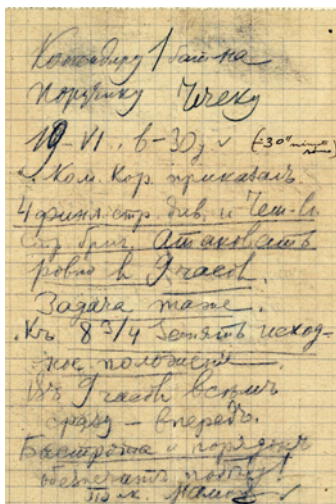 Командиру 1 бат-на
Поручику Чечеку
19-VI.
Ком. Кор. приказалъ
4 финл. стр. див. и Чеш-
стр. бриг. Атаковать
ровно в 9 часов.
Задача таже.
Къ 8 3/4 Занять исход-
ное положение
Въ 9 часов всѣмъ
сразу - впередъ.
Быстрота и порядокъ
обезпечатъ победу!